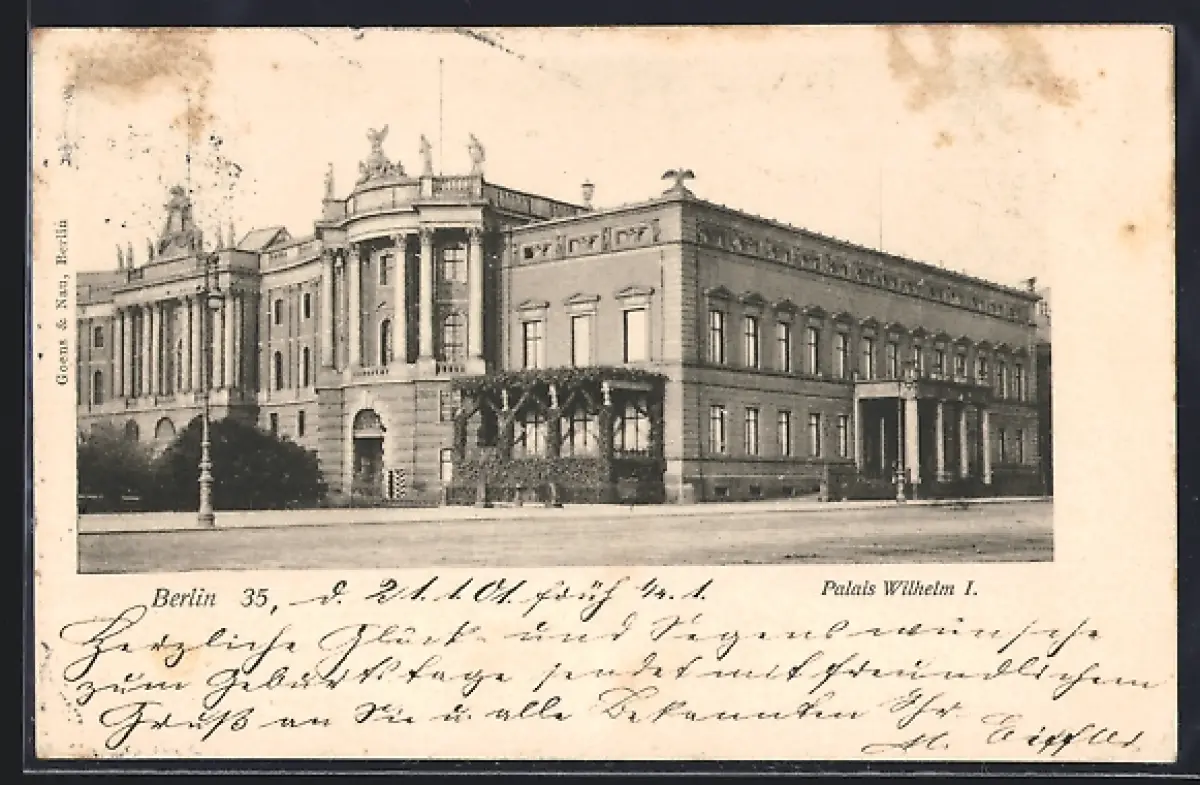 Goens & Nau, Berlin
Berlin 35, d. 21.1.01. früh ¼ 1.
Palais Wilhelm I.
Herzliche Glück- und Segenswünsche
zum Geburtstage sendet mit freundlichem
Gruß an Sie u. alle Bekannten Ihr